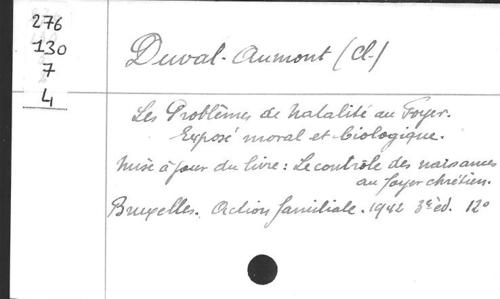 276
130
7
4
Duval-Aumont (Cl.)
Les Problèmes de Natalité au Foyer.
Exposé moral et biologique.
Mise à jour du livre : Le contrôle des naissances
au foyer chrétien.
Bruxelles. Action familiale. 1942 3e éd. 12°